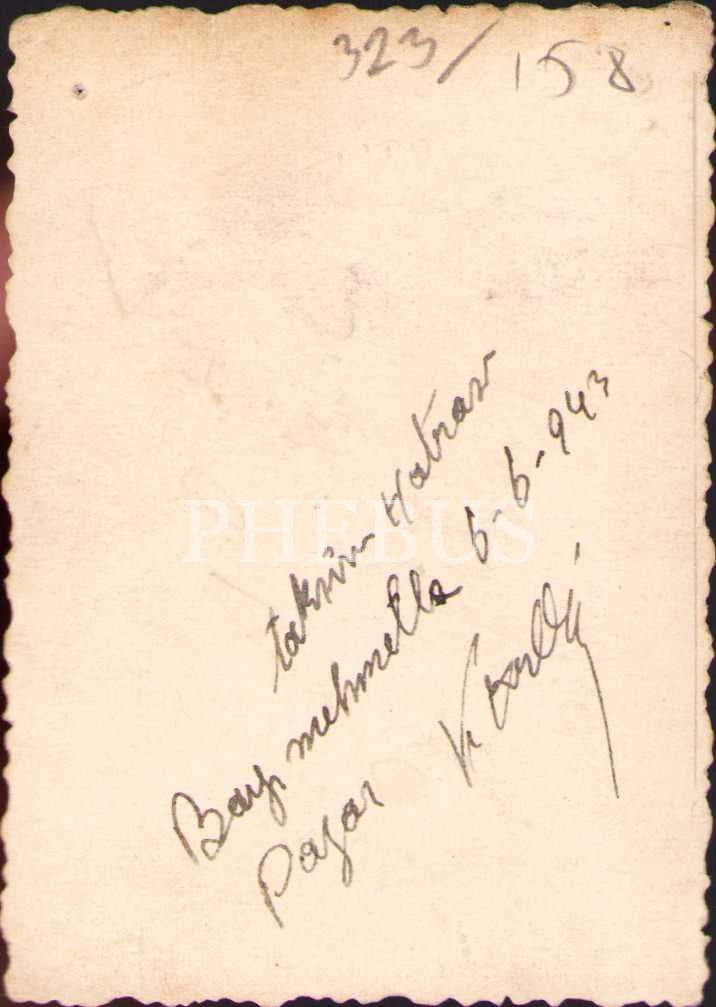 323/158
taksim Hatırası
Bay mehmetle 6-6-943
Pazar
PHEBUS